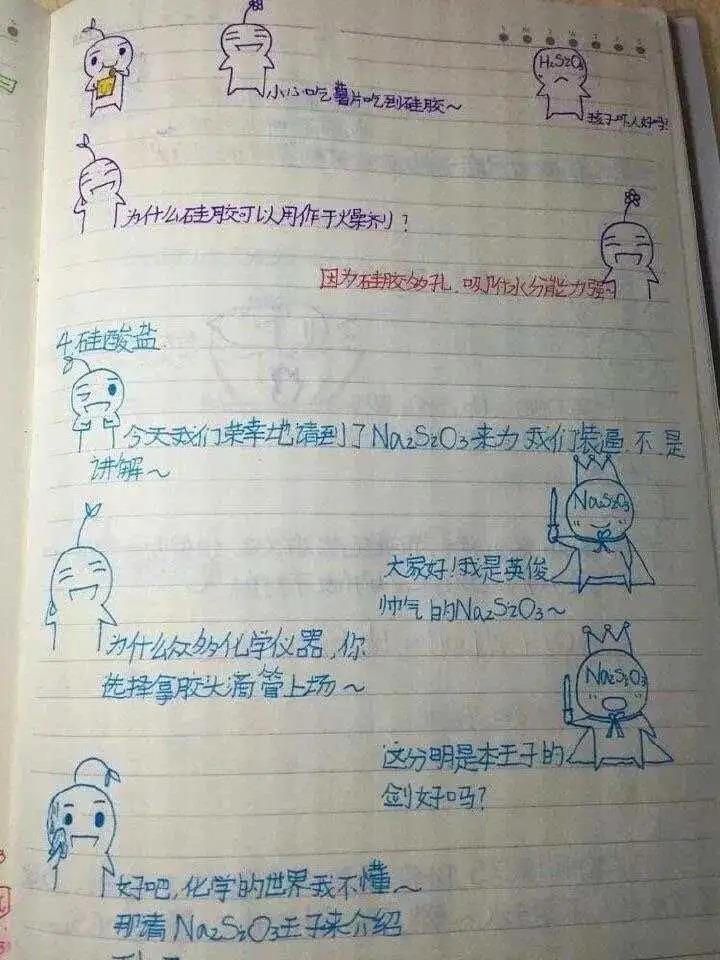 小心吃薯片吃到硅胶～
H₂SiO₃
孩子吓人好吗!
为什么硅胶可以用作干燥剂?
因为硅胶多孔.吸附水分能力强
4.硅酸盐
今天我们荣幸地请到了Na₂SiO₃来为我们装逼.不是
讲解～
Na₂SiO₃
大家好!我是英俊
帅气的Na₂SiO₃～
为什么众多化学仪器,你
选择拿胶头滴管上场～
Na₂SiO₃
这分明是本王子的
剑好吗?
好吧,化学的世界我不懂～
那请Na₂SiO₃王子来介绍